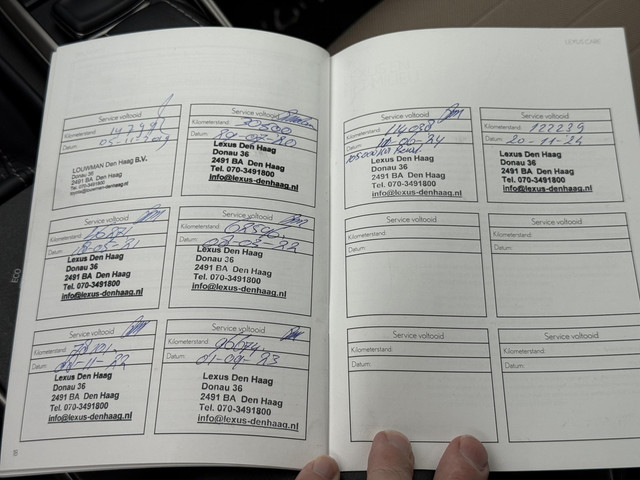 LEXUS CARE
Service voltooid
Kilometerstand:
Datum:
LOUWMAN Den Haag B.V.
Donau 36
2491 BA Den Haag
Tel. 070-3491800
Service voltooid
Kilometerstand: 30500
Datum:
Lexus Den Haag
Donau 36
2491 BA Den Haag
Tel. 070-3491800
Info@lexus-denhaag.nl
Service voltooid
Kilometerstand:
Datum:
Lexus Den Haag
Donau 36
2491 BA Den Haag
Tel. 070-3491800
info@lexus-denhaag.nl
Service voltooid
Kilometerstand:
Datum:
Lexus Den Haag
Donau 36
2491 BA Den Haag
Tel. 070-3491800
info@lexus-denhaag.nl
Service voltooid
Kilometerstand:
Datum:
Lexus Den Haag
Donau 36
2491 BA Den Haag
Tel. 070-3491800
info@lexus-denhaag.nl
Service voltooid
Kilometerstand:
Datum: 01-09-23
Lexus Den Haag
Donau 36
2491 BA Den Haag
Tel. 070-3491800
info@lexus-denhaag.nl
Service voltooid
Kilometerstand: 114038
Datum:
Lexus Den Haag
Donau 36
2491 BA Den Haag
Tel. 070-3491800
info@lexus-denhaag.nl
Service voltooid
Kilometerstand: 122239
Datum: 20-11-24
Lexus Den Haag
Donau 36
2491 BA Den Haag
Tel. 070-3491800
info@lexus-denhaag.nl
Service voltooid
Kilometerstand:
Datum:
Service voltooid
Kilometerstand:
Datum:
Service voltooid
Kilometerstand:
Datum:
Service voltooid
Kilometerstand:
Datum:
ECO